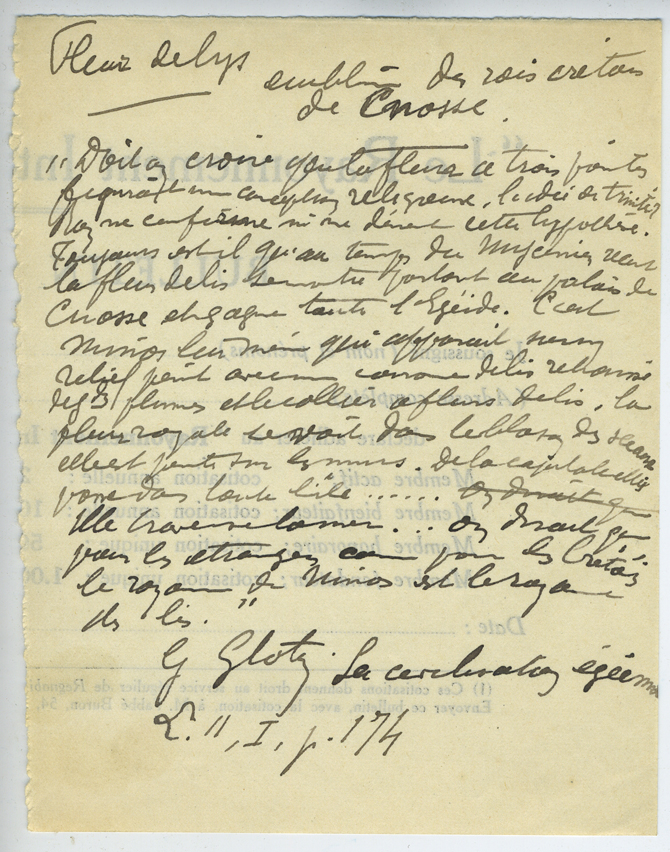 Fleur de lys
emblème des rois crétois
de Cnosse.
"Doit on croire que la fleur à trois pointes
figurait une conception religieuse, l'idée de trinité
Rien ne confirme ni ne dément cette hypothèse.
Toujours est il qu'au temps du Minoen récent
la fleur de lis se montre partout au palais de
Cnosse et gagne toute l'Egéide. C'est
Minos lui même qui apparait en un
relief peint avec une couronne de lis rehaussé
de 3 plumes et le collier à fleurs de lis, la
fleur royale se voit dans le blason des
elle est peinte sur les murs. De la capitale elle
passe dans toute l'île ...... On dirait que
Elle traverse la mer... On dirait que
pour les étrangers comme pour les Crétois
le royaume de Minos est le royaume
des lis."
G Glotz La civilisation égéenne
L. II, I, p. 174
"Le Rayonnement Int
BULLETIN
Je soussigné (nom et prénoms)
(Adresse complète)
déclare adhérer au Rayonnement Int
Membre actif : cotisation annuelle : 2
Membre bienfaiteur : cotisation annuelle : 10
Membre honoraire : cotisation unique : 50
Membre fondateur : cotisation unique : 1.00
Date :
(1) Ces cotisations donnent droit au service régulier de
Envoyer ce bulletin, avec la cotisation, à M. l'abbé Buron, 54,